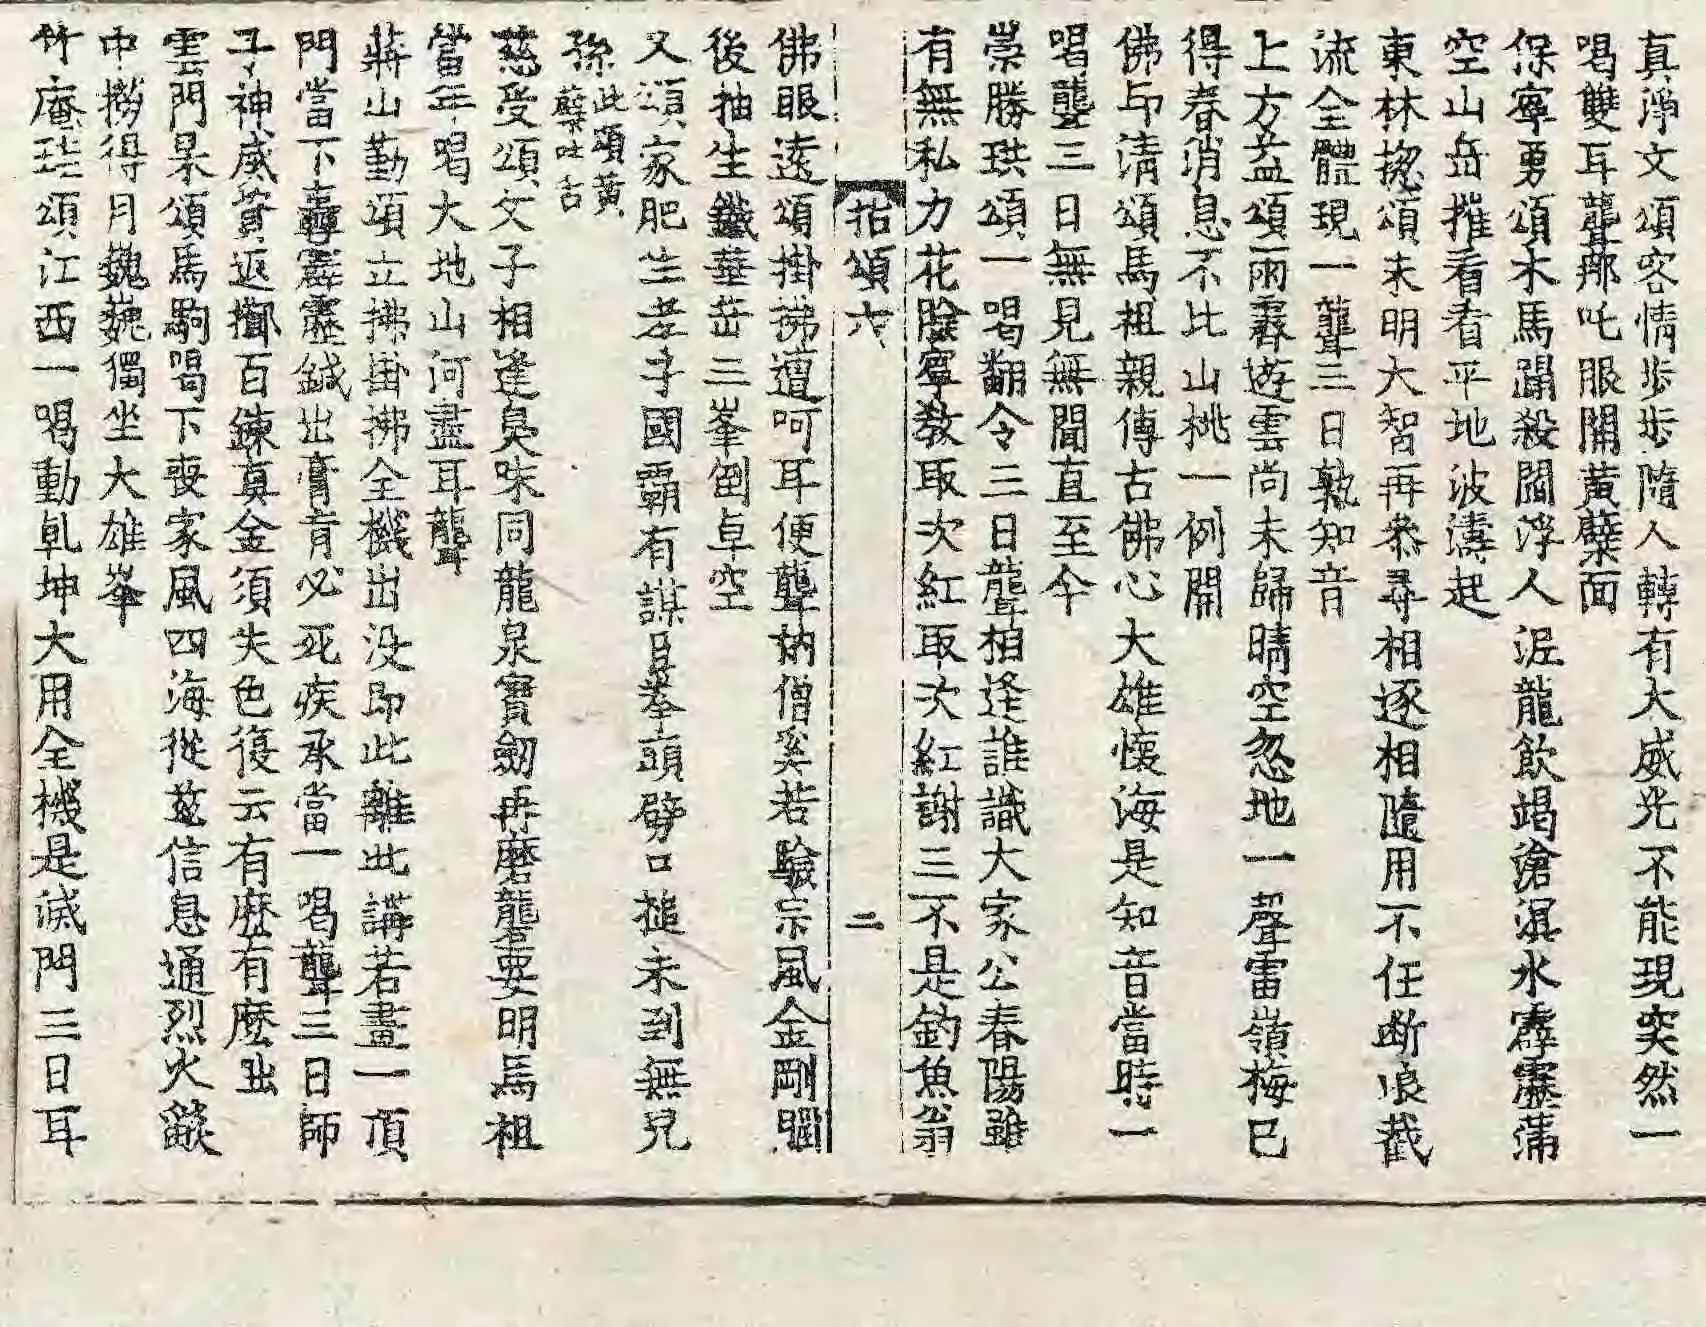 真淨文頌客情步步隨人轉有大威光不能現突然一
喝雙耳聾那吒眼開黃蘗面
保寧勇頌木馬踢殺閻浮人泥龍飲竭滄溟水霹靂滿
空山岳摧看看平地波濤起
東林揔頌未明大智再叅尋相逐相隨用不任斷浪截
流全體現一聾三日孰知音
上方益頌雨霽遊雲尚未歸晴空忽地一聲雷嶺梅已
得春消息不比山桃一例開
佛印清頌馬祖親傳古佛心大雄懷海是知音當時一
喝聾三日無見無聞直至今
崇勝珙頌一喝翻令三日聾相逢誰識大家公春陽雖
有無私力花臉寧敎取次紅取次紅謝三不是釣魚翁
拈頌六 二
佛眼遠頌掛拂遭呵耳便聾衲僧奚若驗宗風金剛腦
後抽生鐵華岳三峯倒卓空
又頌家肥生孝子國霸有謀臣拳頭劈口槌未到無兒
孫此頌黃蘗吐舌
慈受頌父子相逢臭味同龍泉寶劒再磨礱要明馬祖
當年喝大地山河盡耳聾
蔣山勤頌立拂掛拂全機出沒卽此離此講若畫一頂
門當下轟霹靂鍼出膏肓必死疾承當一喝聾三日師
子神威資返擲百鍊真金須失色復云有麽有麽出
雲門杲頌馬駒喝下喪家風四海從玆信息通烈火焰
中撈得月巍巍獨坐大雄峯
竹庵珪頌江西一喝動乹坤大用全機是滅門三日耳